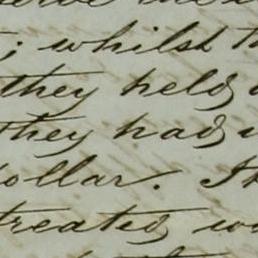 ; whilst th
they held
they had
ollar. Th
treated wo